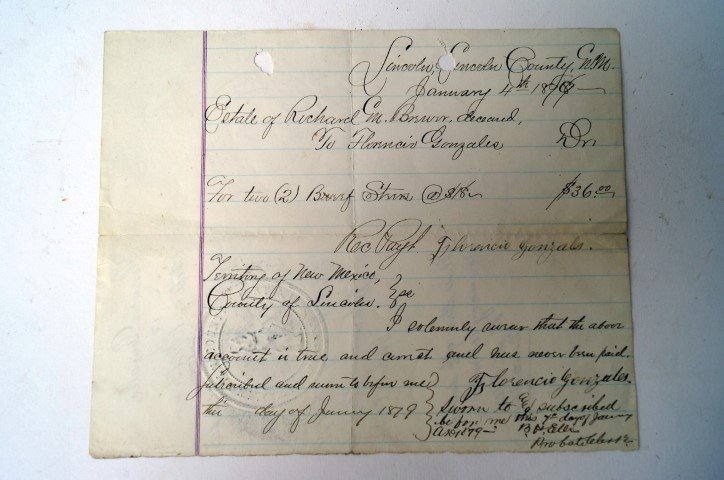 Lincoln, Lincoln County, N.M.
January 4th 187
Estate of Richard M. Brewer, deceased,
To Florencio Gonzales Dr.
For two (2) Beef Steers @ $18 $36.00
Rec Payt. Florencio Gonzales.
Territory of New Mexico,
County of Lincoln. } ss
I solemnly swear that the above
account is true and correct and has never been paid.
Subscribed and sworn to before me } Florencio Gonzales.
this day of January 1879
Sworn to & subscribed
before me this 7th day of January
A.D. 1879
B. H. Ellis
Probate Clerk